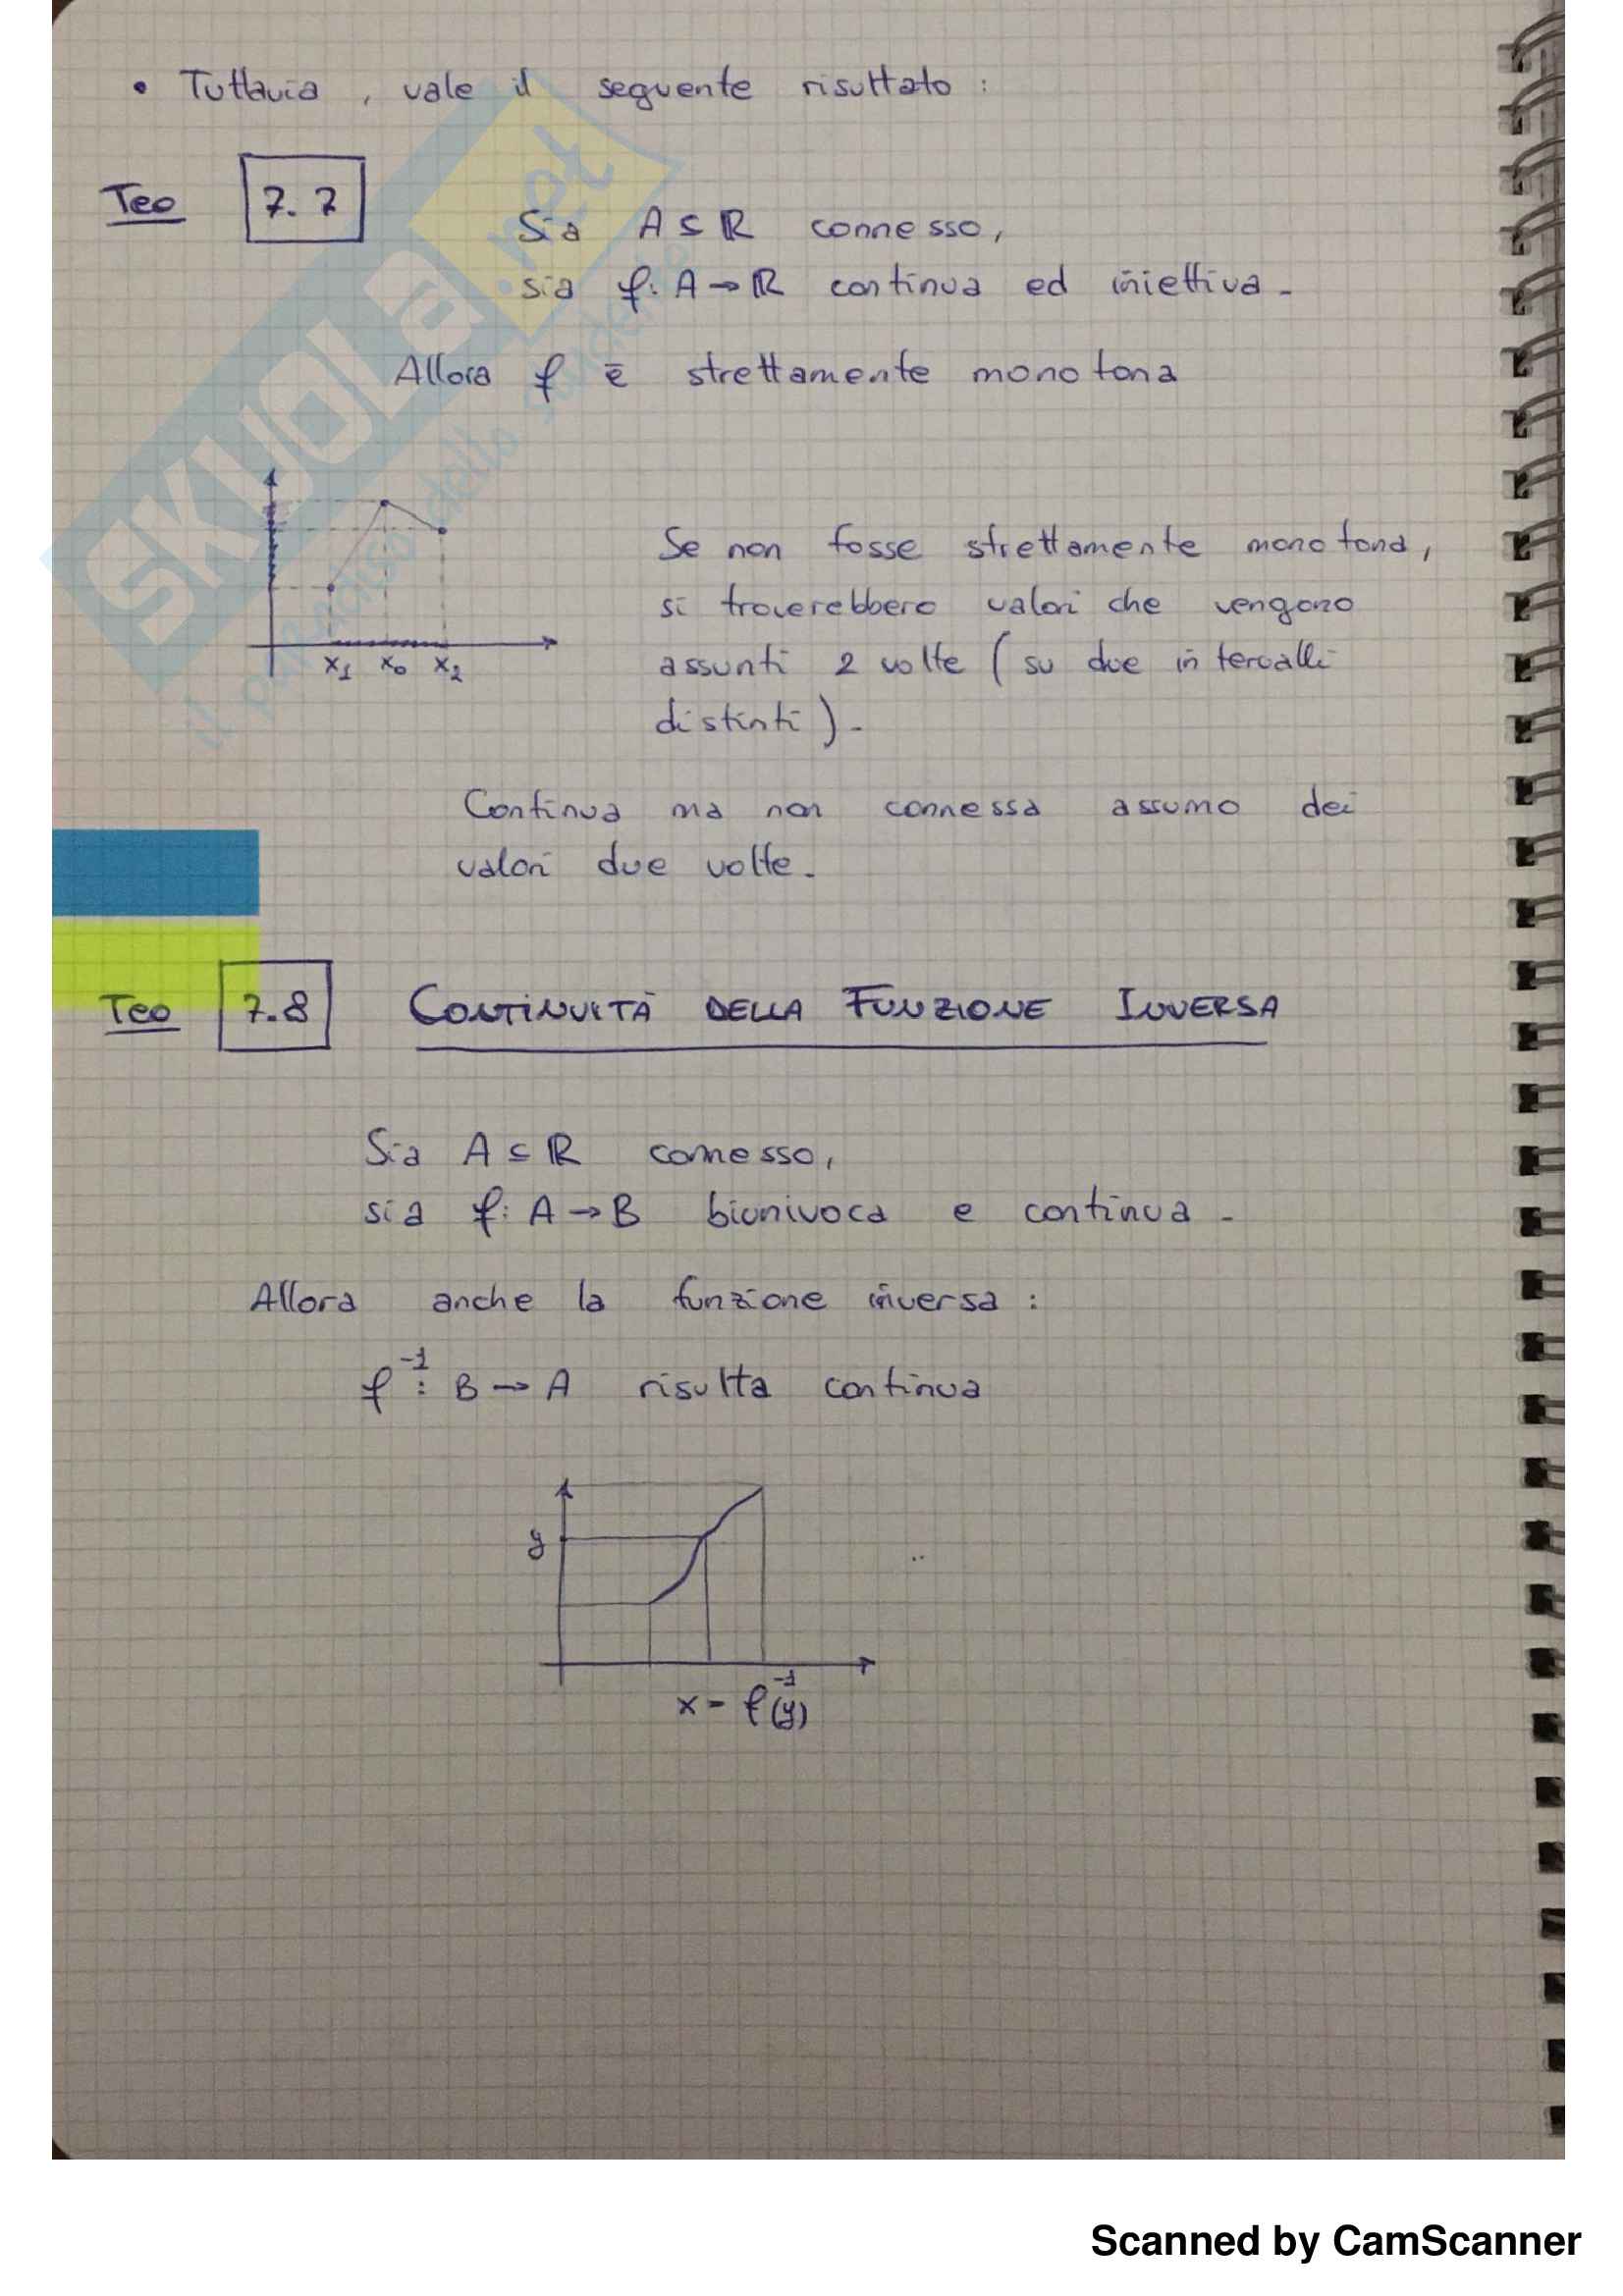 • Tuttavia, vale il seguente risultato:
Teo 7.7
Sia A ⊆ ℝ connesso,
sia f: A → ℝ continua ed iniettiva.
Allora f è strettamente monotona
Se non fosse strettamente monotona,
si troverebbero valori che vengono
assunti 2 volte (su due intervalli
distinti).
x₁ x₀ x₂
Continua ma non connessa assumo dei
valori due volte.
Teo 7.8 CONTINUITÀ DELLA FUNZIONE INVERSA
Sia A ⊆ ℝ connesso,
sia f: A → B biunivoca e continua.
Allora anche la funzione inversa:
f⁻¹: B → A risulta continua
y
x = f⁻¹(y)
SKUOLA.net
il paradiso dello studente
Scanned by CamScanner